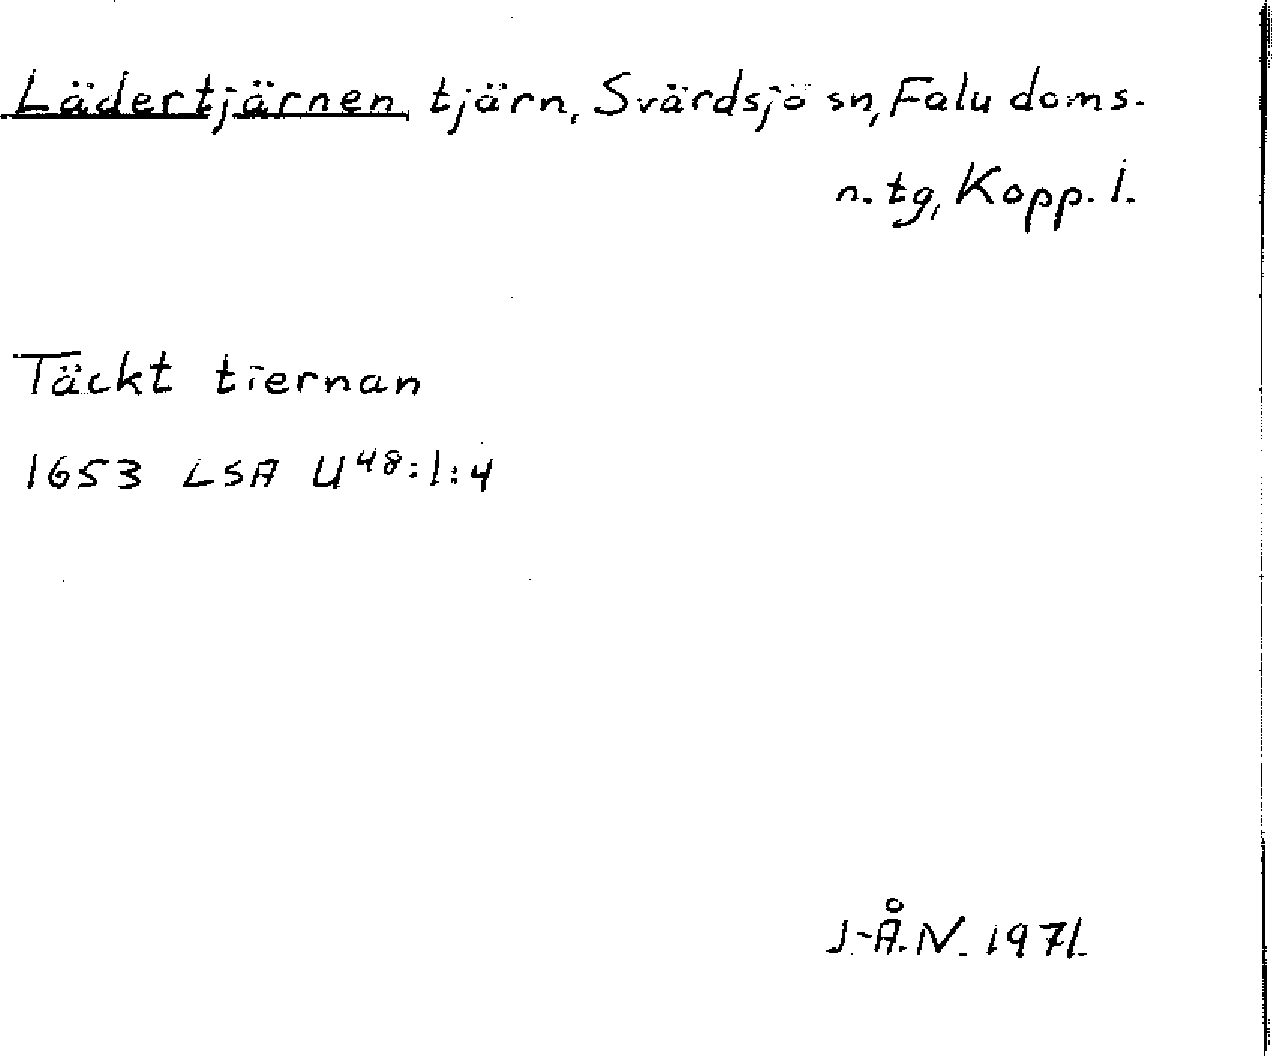 Lädertjärnen, tjärn, Svärdsjö sn, Falu doms.
n. tg, Kopp. l.
Täckt tiernan
1653 LSA U48:1:4
J.-Å. N. 1971.